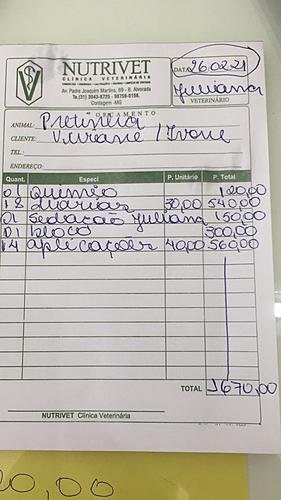 NUTRIVET
CLÍNICA VETERINÁRIA
Av. Padre Joaquim Martins, 69 - B. Alvorada
Tel.(31) 3043-8725 - 98756-0158.
Contagem -MG
DATA 26.02.21
Juliana
VETERINÁRIO
ORÇAMENTO
ANIMAL: Pretinha
CLIENTE: Viviane / Ivone
TEL.:
ENDEREÇO:
Quant. Especi P. Unitário P. Total
01 Quimio 120,00
18 diarias 30,00 540,00
01 Sedacão Juliana 150,00
01 bloco 300,00
14 aplicações 40,00 560,00
TOTAL 1670,00
NUTRIVET Clínica Veterinária
0,00